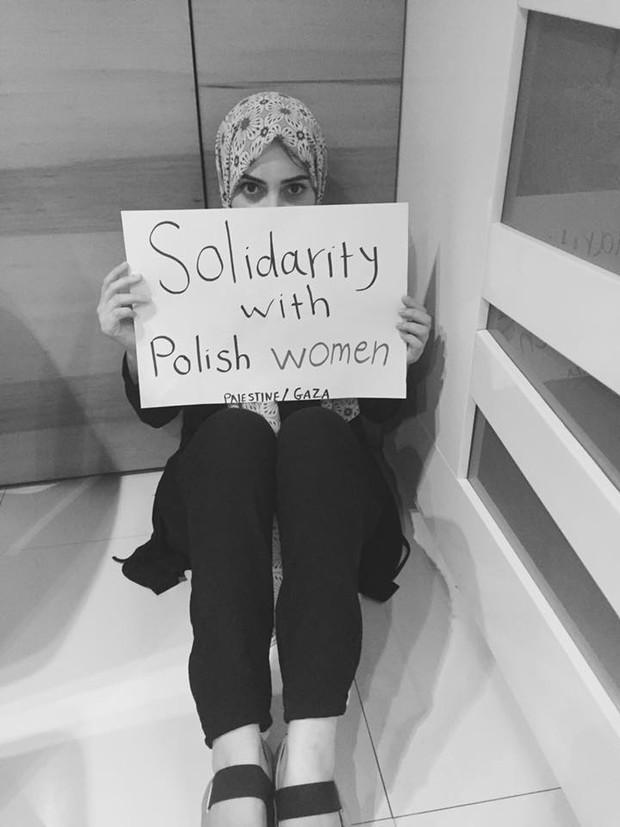 Solidarity
with
Polish women
PALESTINE/GAZA